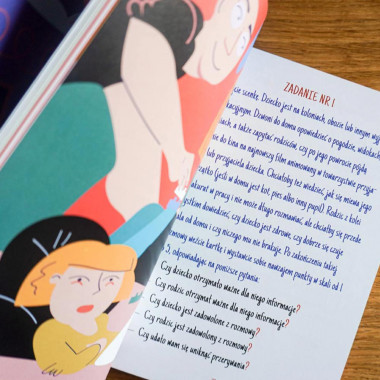 ZADANIE NR 1
cie scenkę. Dziecko jest na koloniach, obozie lub innym wyj
kacyjnym. Dzwoni do domu opowiedzieć o pogodzie, widokach
ach, a także zapytać rodziców, czy po jego powrocie pójdą
ie do kina na najnowszy film animowany w towarzystwie przyja-
lub przyjaciela. Chciałoby też wiedzieć, jak się miewa jego
zątko (jeśli w domu jest kot, pies albo inny pupil). Rodzic z kolei
akurat w pracy i nie może długo rozmawiać, ale chciałby się przede
ystkim dowiedzieć, czy dziecko jest zdrowe, czy dobrze się czuje
la od domu i czy niczego mu nie brakuje. Po zakończeniu takiej
zmowy weźcie kartkę i wystawcie sobie nawzajem punkty w skali od 1
5, odpowiadając na poniższe pytania:
Czy dziecko otrzymało ważne dla niego informacje?
Czy rodzic otrzymał ważne dla niego informacje?
Czy dziecko jest zadowolone z rozmowy?
Czy rodzic jest zadowolony z rozmowy?
Czy udało wam się uniknąć przerywania?